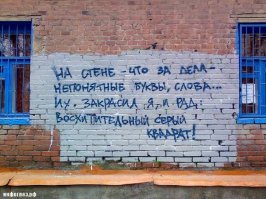 НА СТЕНЕ - ЧТО ЗА ДЕЛА -
НЕПОНЯТНЫЕ БУКВЫ, СЛОВА...
ИХ ЗАКРАСИЛ Я, И РАД,
ВОСХИТИТЕЛЬНЫЙ СЕРЫЙ
КВАДРАТ!
инфоглаз.рф